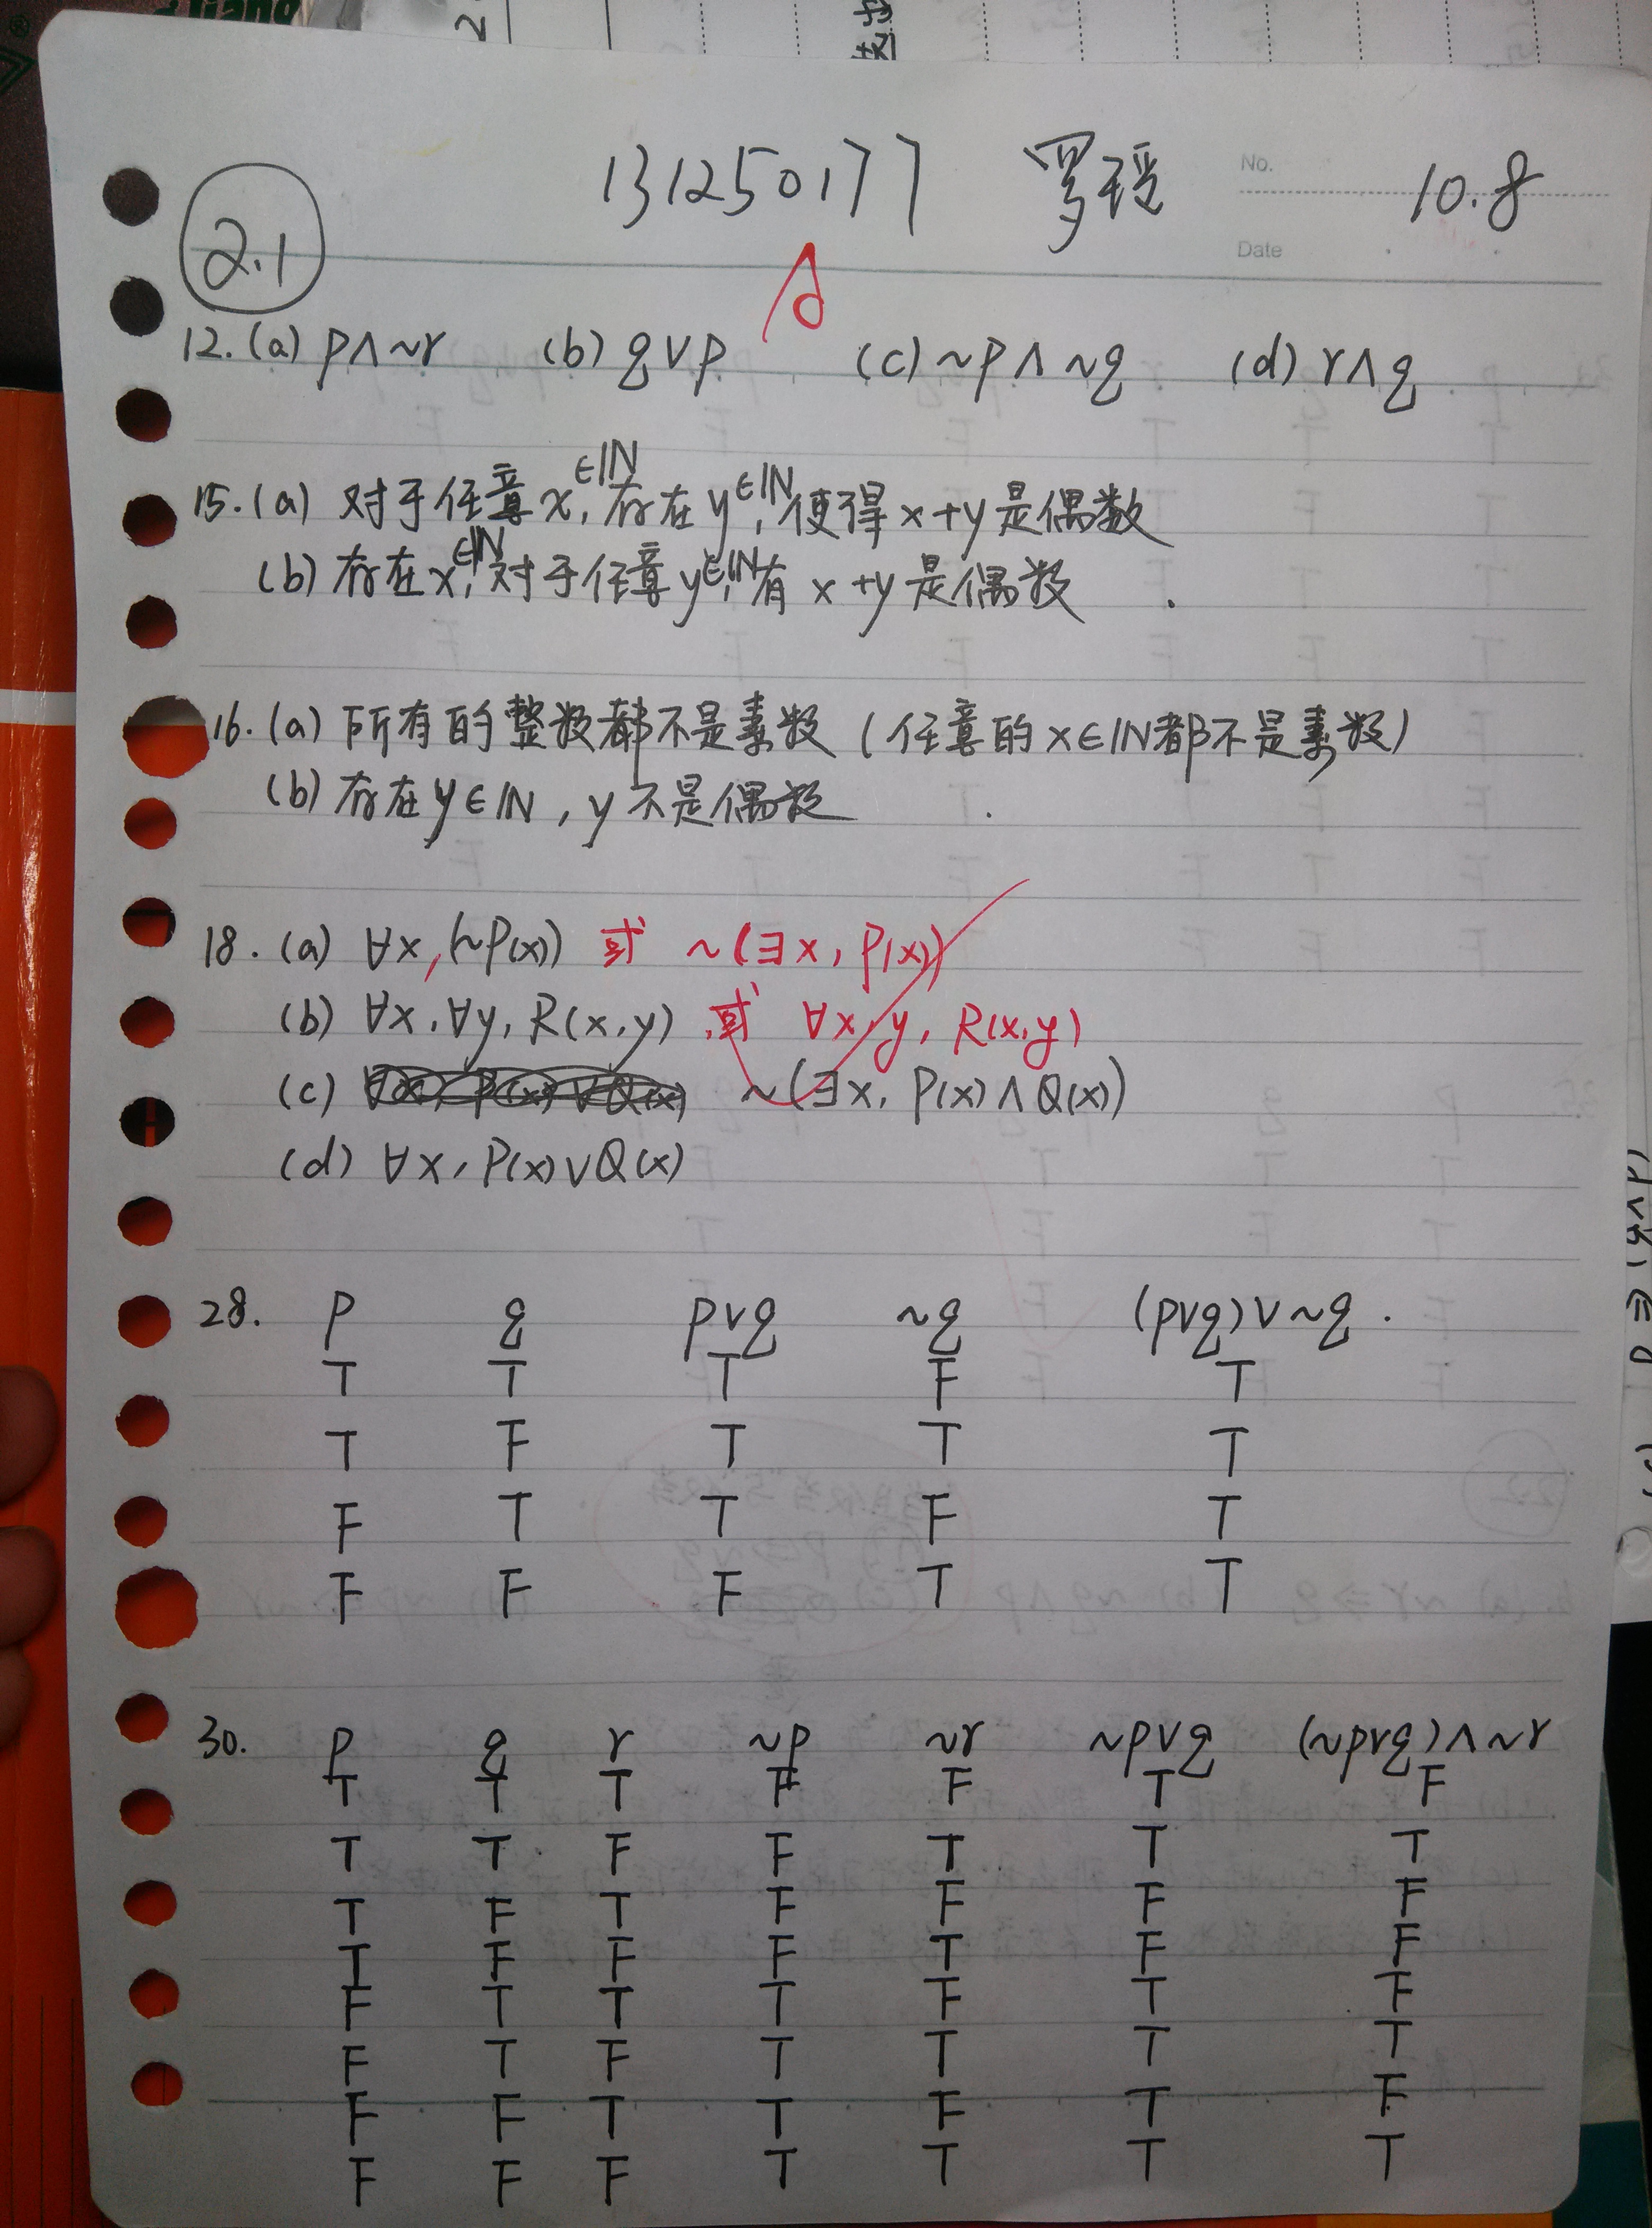 131250177 罗瑶 No. 10.8
Date
2.1
A
12.(a) p∧~r (b) q∨p (c) ~p∧~q (d) r∧q
15.(a) 对于任意x∈IN,存在y∈IN,使得x+y是偶数
(b) 存在x∈IN,对于任意y∈IN,有x+y是偶数.
16.(a) 所有的整数都不是素数(任意的x∈IN都不是素数)
(b) 存在y∈IN,y不是偶数.
18.(a) ∀x,(~P(x)) 或 ~(∃x,P(x))
(b) ∀x,∀y,R(x,y) 或 ∀x,y,R(x,y)
(c) ~(∃x,P(x)∧Q(x))
(d) ∀x,P(x)∨Q(x)
28. p q p∨q ~q (p∨q)∨~q.
T T T F T
T F T T T
F T T F T
F F F T T
30. p q r ~p ~r ~p∨q (~p∨q)∧~r
T T T F F T F
T T F F T T T
T F T F F F F
T F F F T F F
F T T T F T F
F T F T T T T
F F T T F T F
F F F T T T T